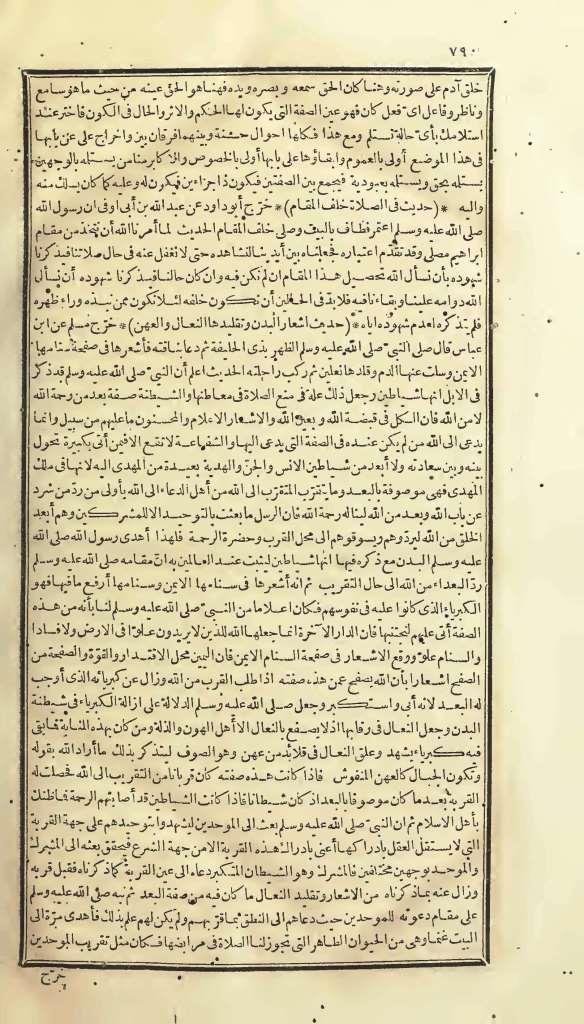 ٧٩٠
خلق آدم على صورته وهنا كان الحق سمعه وبصره ويده فهنا هو الحق عينه من حيث ما هو سامع
وناظر وفاعل اى فعل كان فهو عين الصفة التى يكون لها الحكم والاثر والحال فى الكون فاختر عند
استلامك بأى حالة تستلم ومع هذا فكلها احوال حسنة وبينهما فرقان بين واخراج على عن بابها
فى هذا الموضع أولى بالعموم وابقاؤها على بابها أولى بالخصوص والاكابر منا من يستلمه بالوجهين
يستلمه بحق ويستلمه بعبودية فيجمع بين الصفتين فيكون ذا جزاءين فيكون له وعليه كما كان يسلك منه
واليه * (حديث فى الصلاة خلف المقام) * خرّج أبو داود عن عبد الله بن أبى أوفى ان رسول الله
صلى الله عليه وسلم اعتمر فطاف بالبيت وصلى خلف المقام الحديث لما أمرنا الله أن نتخذ من مقام
ابراهيم مصلى وقد تقدّم اعتباره فجعلناه بين أيدينا لنشاهده حتى لا نغفل عنه فى حال صلاتنا فيذكرنا
شهوده بأن نسأل الله تحصيل هذا المقام ان لم نكن فيه وان كان حالنا فيذكرنا شهوده أن نسأل
الله دوامه علينا وبقاءنا فيه فلابد فى الحالين أن نكون خلفه لئلا نكون ممن نبذه وراء ظهره
فلم يتذكره لعدم شهوده اياه * (حديث اشعار البدن وتقليدها النعال والعهن) * خرّج مسلم عن ابن
عباس قال صلى النبىّ صلى الله عليه وسلم الظهر بذى الحليفة ثم دعا بناقته فأشعرها فى صفحة سنامها
الايمن وسلت عنها الدم وقلدها نعلين ثم ركب راحلته الحديث اعلم أن النبىّ صلى الله عليه وسلم قد ذكر
فى الابل انها شياطين وجعل ذلك علة فى منع الصلاة فى معاطنها والشيطنة صفة بعد من رحمة الله
لا من الله فان الكل فى قبضة الله وبعين الله والاشعار الاعلام والمحسنون ما عليهم من سبيل وانما
يدعى الى الله من لم يكن عنده فى الصفة التى يدعى اليها والشفاعة لا تقع الا فيمن أتى بكبيرة تحول
بينه وبين سعادته ولا أبعد من شياطين الانس والجن والهدية بعيدة من المهدى اليه لانها فى ملك
المهدى فهى موصوفة بالبعد وما يتقرّب المتقرّب الى الله من أهل الدعاء الى الله بأولى من ردّ من شرد
عن باب الله وبعد من الله ليناله رحمة الله فان الرسل ما بعثت بالتوحيد الا للمشركين وهم أبعد
الخلق من الله ليردّوهم ويسوقوهم الى محل القرب وحضرة الرحمة فلهذا أهدى رسول الله صلى الله
عليه وسلم البدن مع ذكره فيها انها شياطين ليثبت عند العالمين به انّ مقامه صلى الله عليه وسلم
ردّ البعداء من الله الى حال التقريب ثم انه أشعرها فى سنامها الايمن وسنامها أرفع ما فيها فهو
الكبرياء الذى كانوا عليه فى نفوسهم فكان اعلاما من النبىّ صلى الله عليه وسلم لنا بأنه من هذه
الصفة أتى عليهم لنجتنبها فان الدار الآخرة انما جعلها الله للذين لا يريدون علوّا فى الارض ولا فسادا
والسنام علوّ ووقع الاشعار فى صفحة السنام الايمن فان اليمين محل الاقتدار والقوّة والصفحة من
الصفح اشعارا بأن الله يصفح عن هذه صفته اذا طلب القرب من الله وزال عن كبريائه الذى أوجب
له البعد لانه أبى واستكبر وجعل صلى الله عليه وسلم الدلالة على ازالة الكبرياء فى شيطنة
البدن وجعل النعال فى رقابها اذ لا يصفع بالنعال الا أهل الهون والذلة ومن كان بهذه المثابة فما بقى
فيه كبرياء يشهد وعلق النعال فى قلائد من عهن وهو الصوف ليتذكر بذلك ما أراد الله بقوله
وتكون الجبال كالعهن المنفوش فاذا كانت هذه صفته كان قربانا من التقريب الى الله فحصلت له
القربة بعد ما كان موصوفا بالبعد اذ كان شيطانا فاذا كانت الشياطين قد أصابتهم الرحمة فما ظنك
بأهل الاسلام ثم ان النبىّ صلى الله عليه وسلم بعث الى الموحدين ليشهدوا توحيدهم على جهة القربة
التى لا يستقل العقل بادراكها أعنى بادراك هذه القربة الا من جهة الشرع فيحقق بعثه الى المشرك
والموحد بوجهين مختلفين فالمشرك وهو الشيطان المتكبر دعاه الى عين القربة كما ذكرناه فقبل قربه
وزال عنه بما ذكرناه من الاشعار وتقليد النعال ما كان فيه من صفة البعد ثم نبه صلى الله عليه وسلم
على مقام دعوته للموحدين حيث دعاهم الى النطق بما قرّبهم ولم يكن لهم علم بذلك فأهدى مرّة الى
البيت غنما وهى من الحيوان الطاهر التى تجوز لنا الصلاة فى مرابضها فكان مثل تقريب الموحدين
خرّج